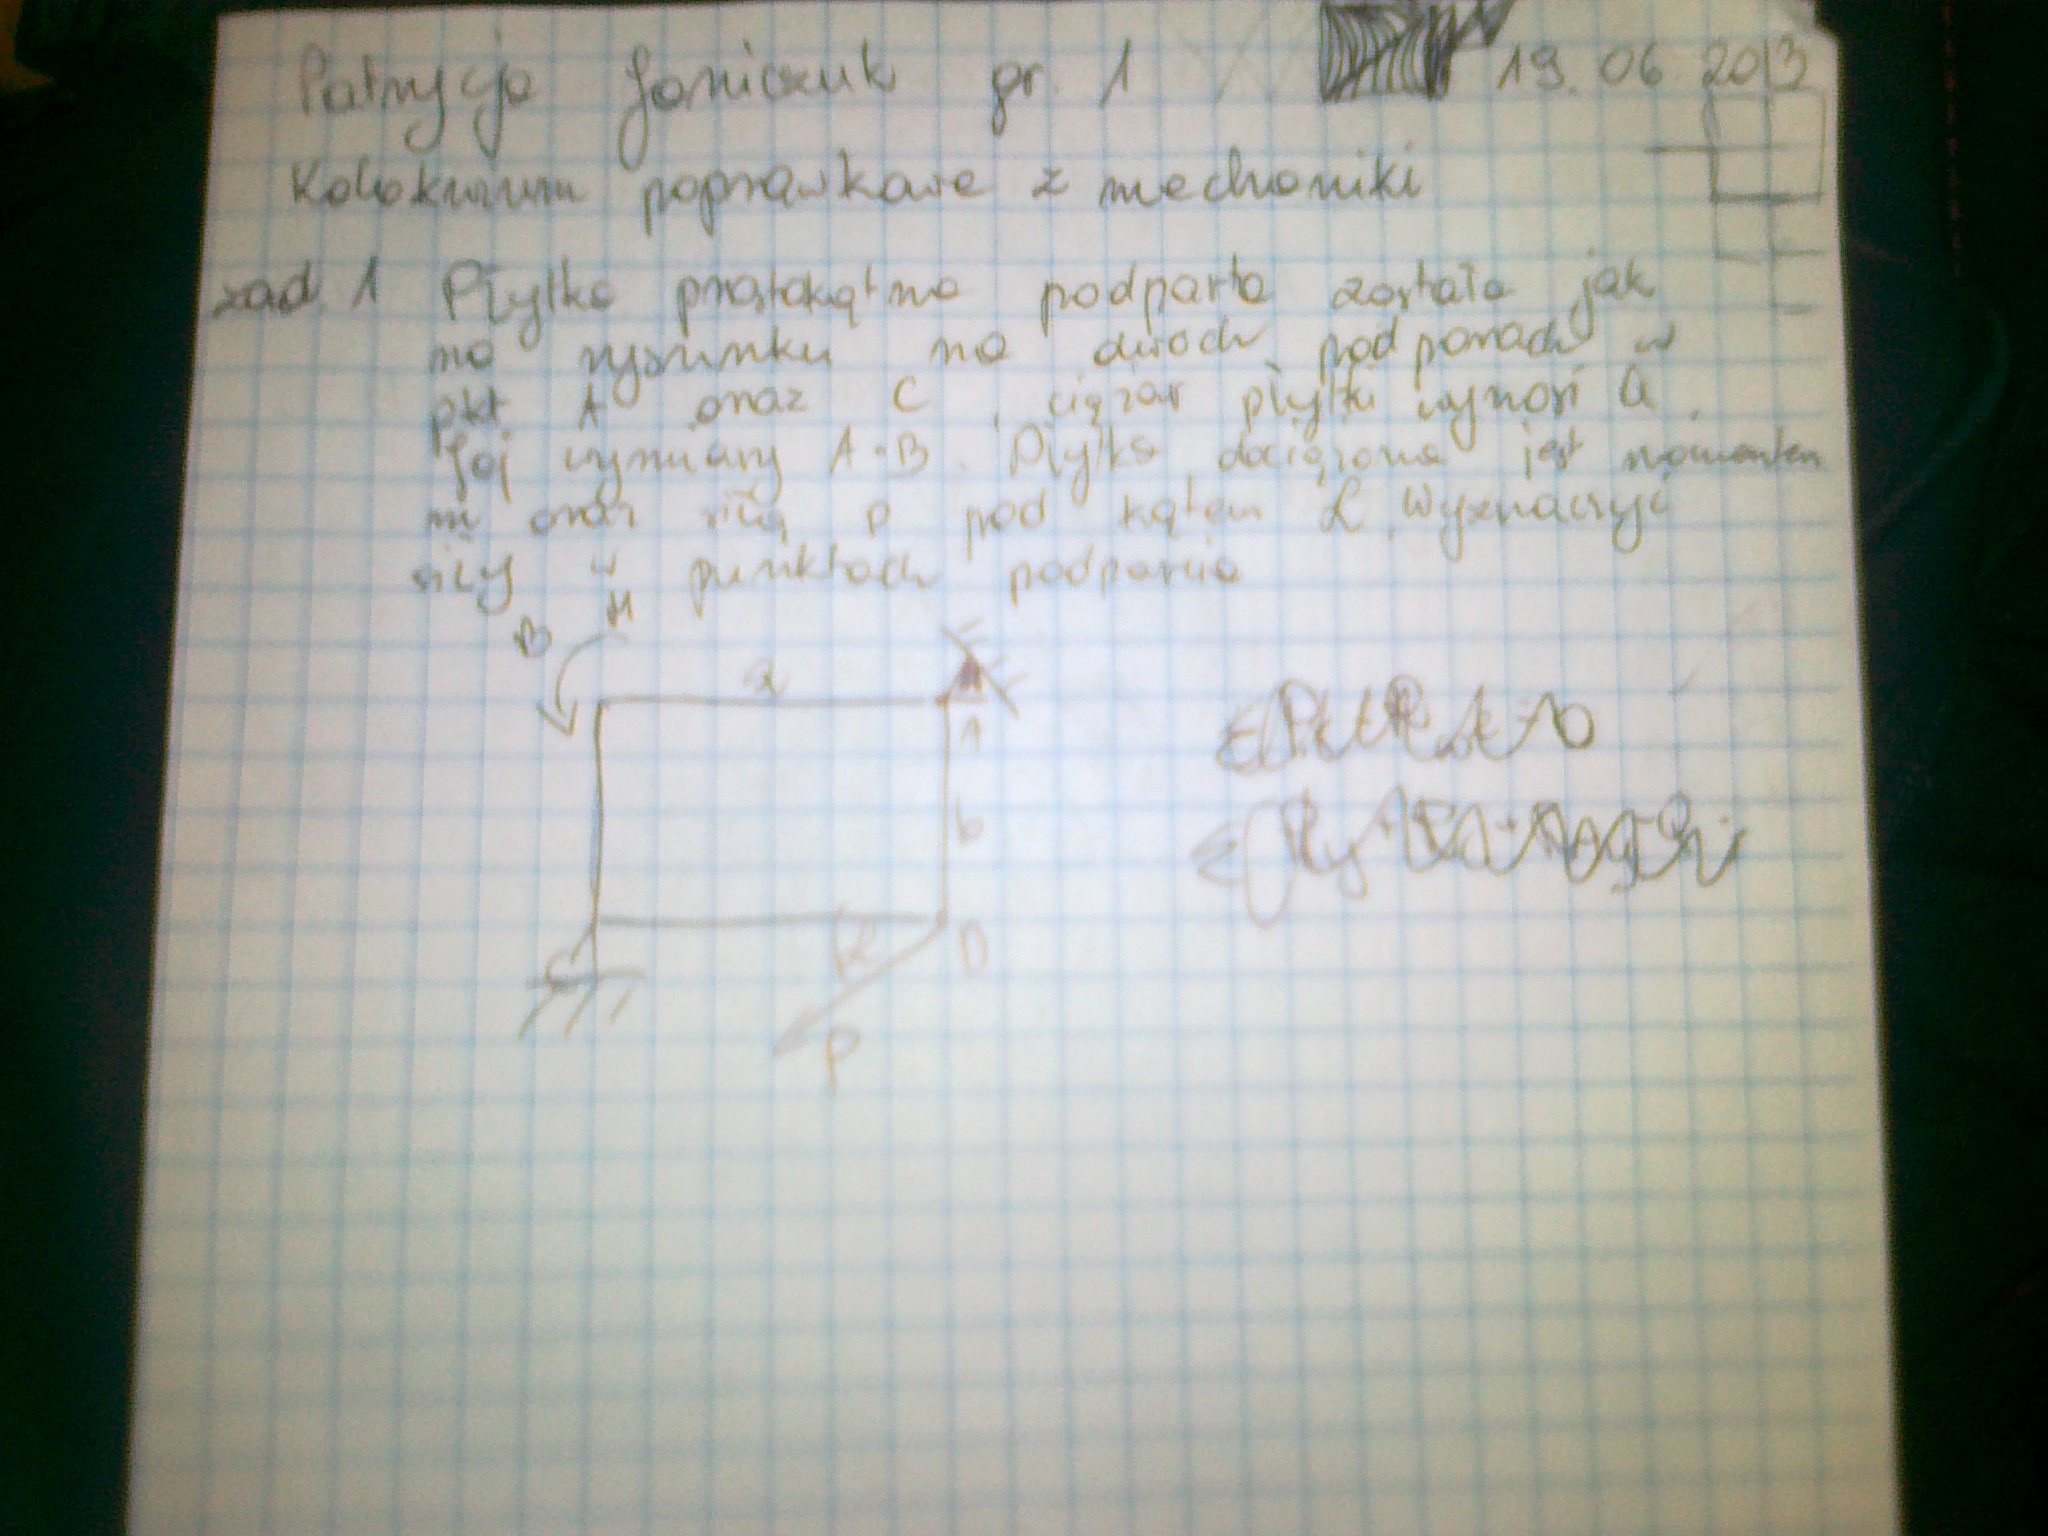 Patrycja Janiczuk gr. 1 19. 06 2013
Kolokwium poprawkowe z mechaniki
zad. 1 Płytka prostokątna podparta została jak
na rysunku na dwóch podporach w
pkt A oraz C, ciężar płytki wynosi Q.
Jej wymiary A·B. Płytka dociążona jest momentem
m oraz siłą P pod kątem α. Wyznaczyć
siły w punktach podparcia
B M
a
A
b
α D
P